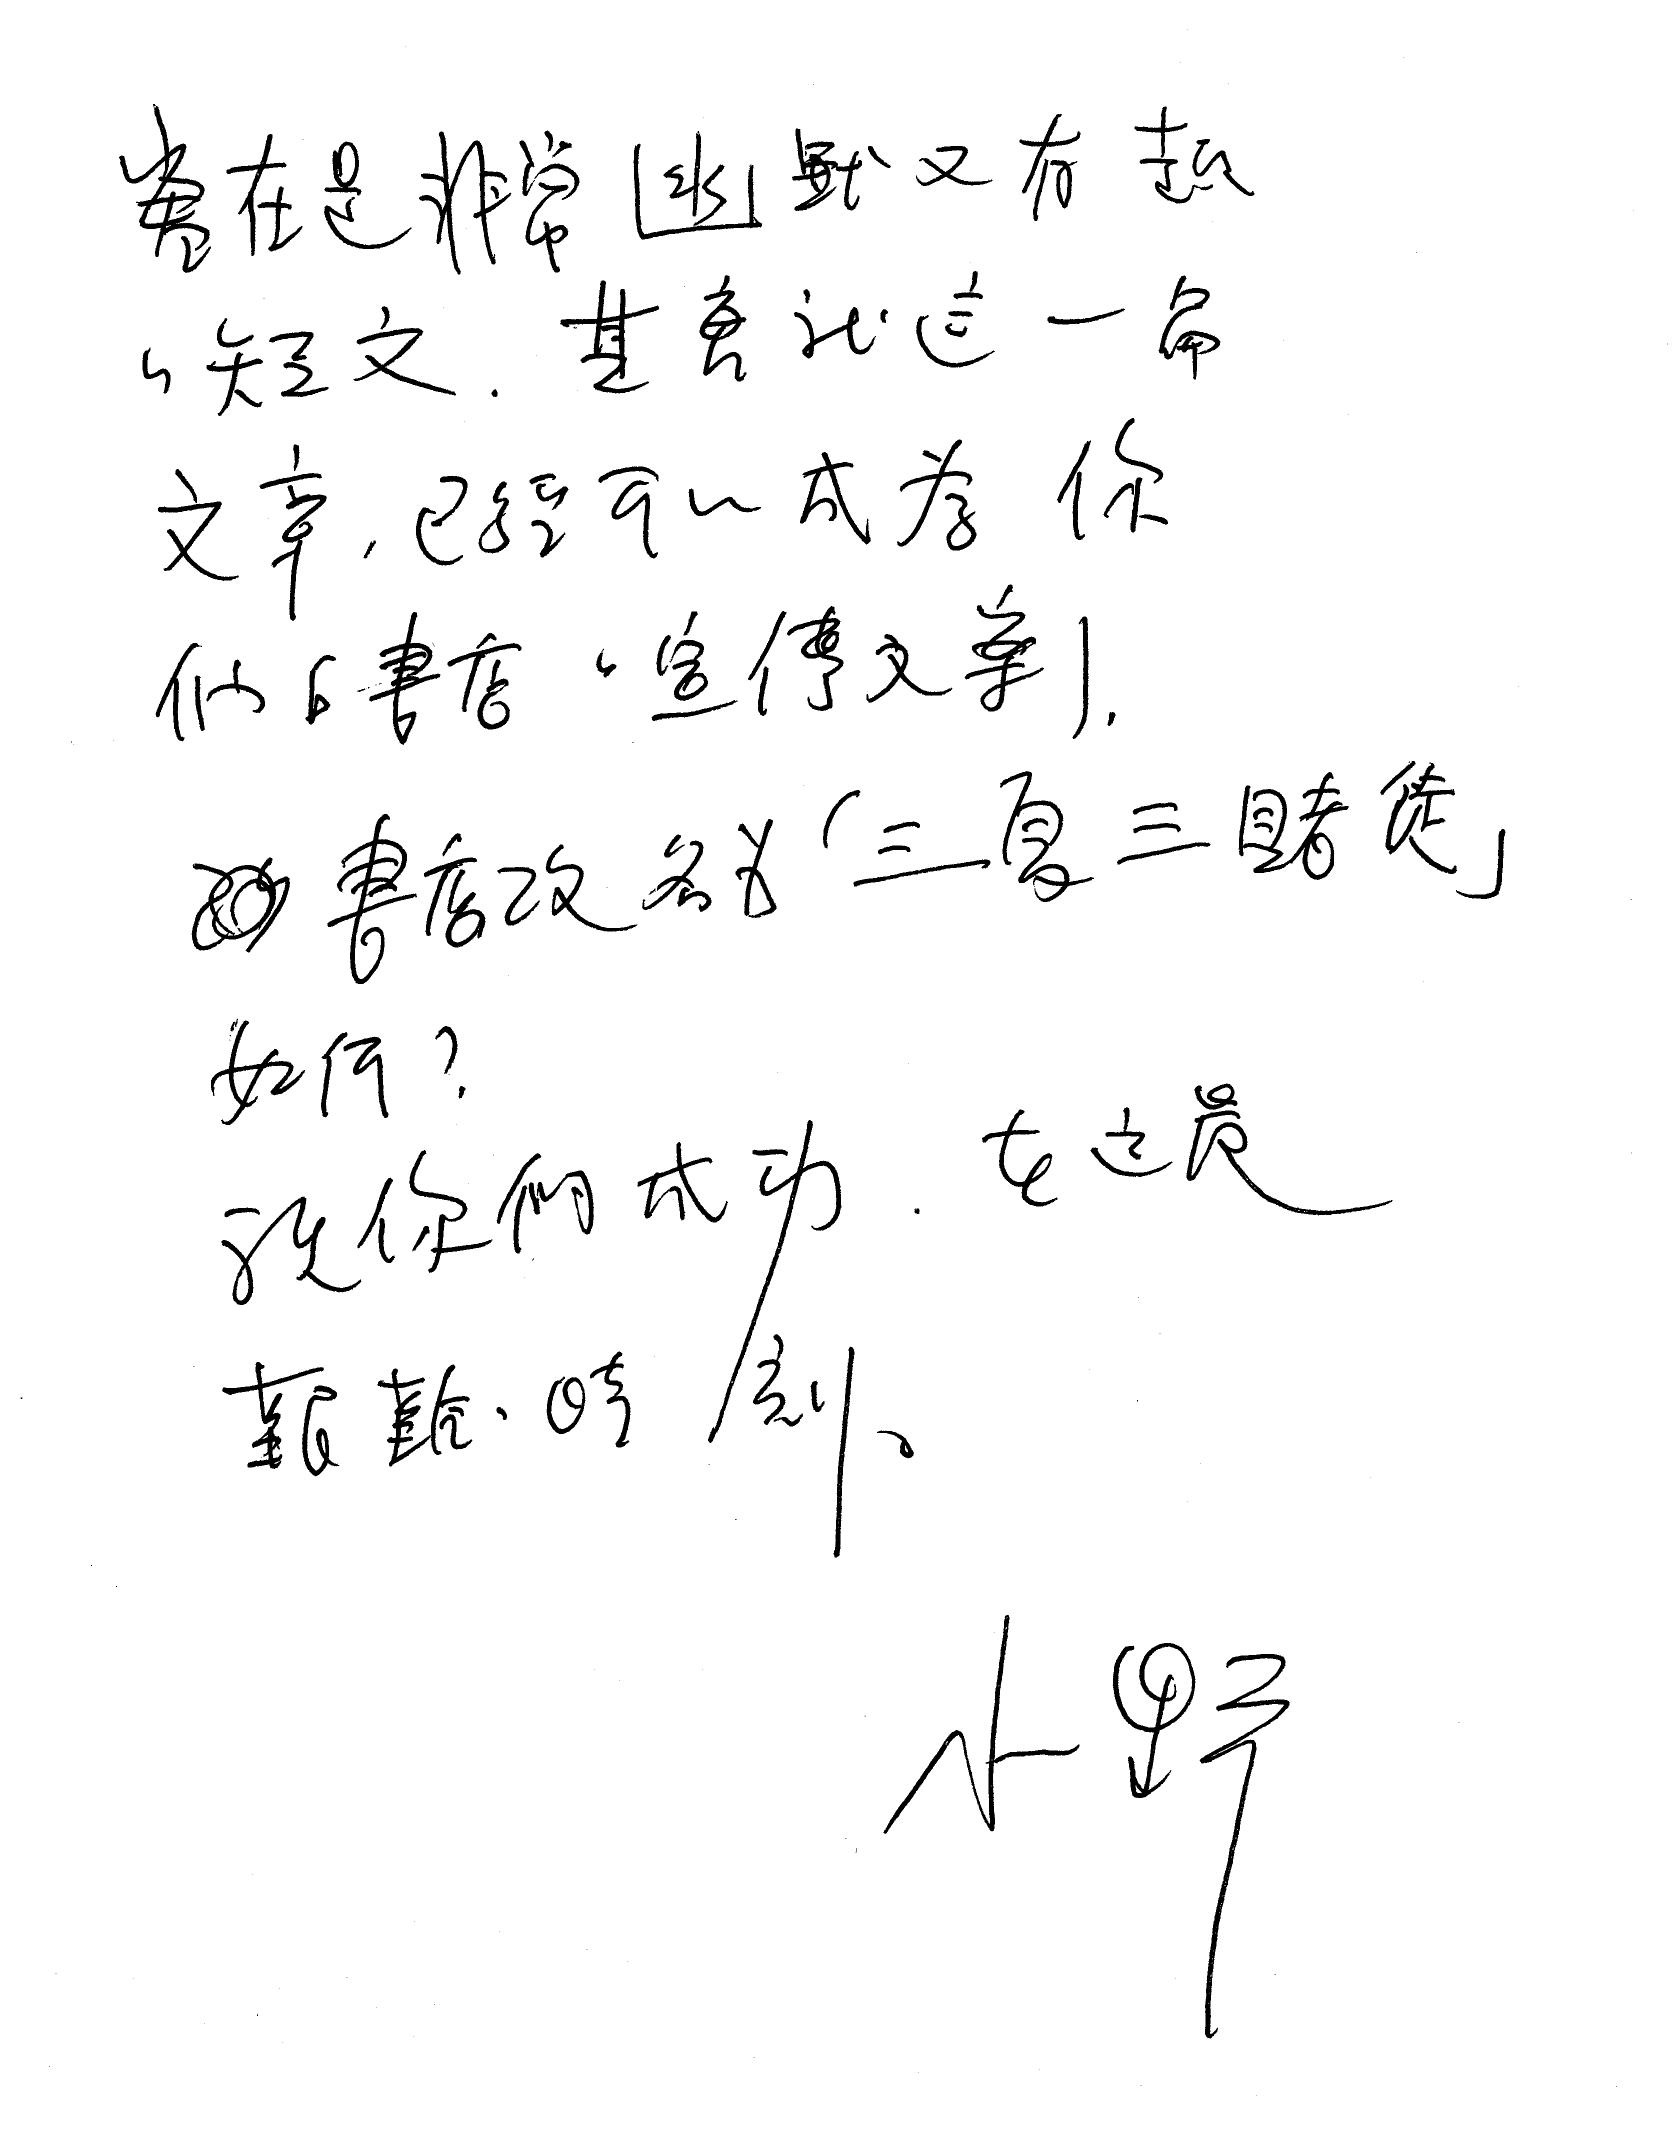 實在是非常幽默又有趣
的短文.其實就這一篇
文章,已經可以成為你
們「書店的宣傳文案」.
書店改名為「三夏三賭徒」
如何?
祝你們成功.在這最
艱難的時刻、
小野